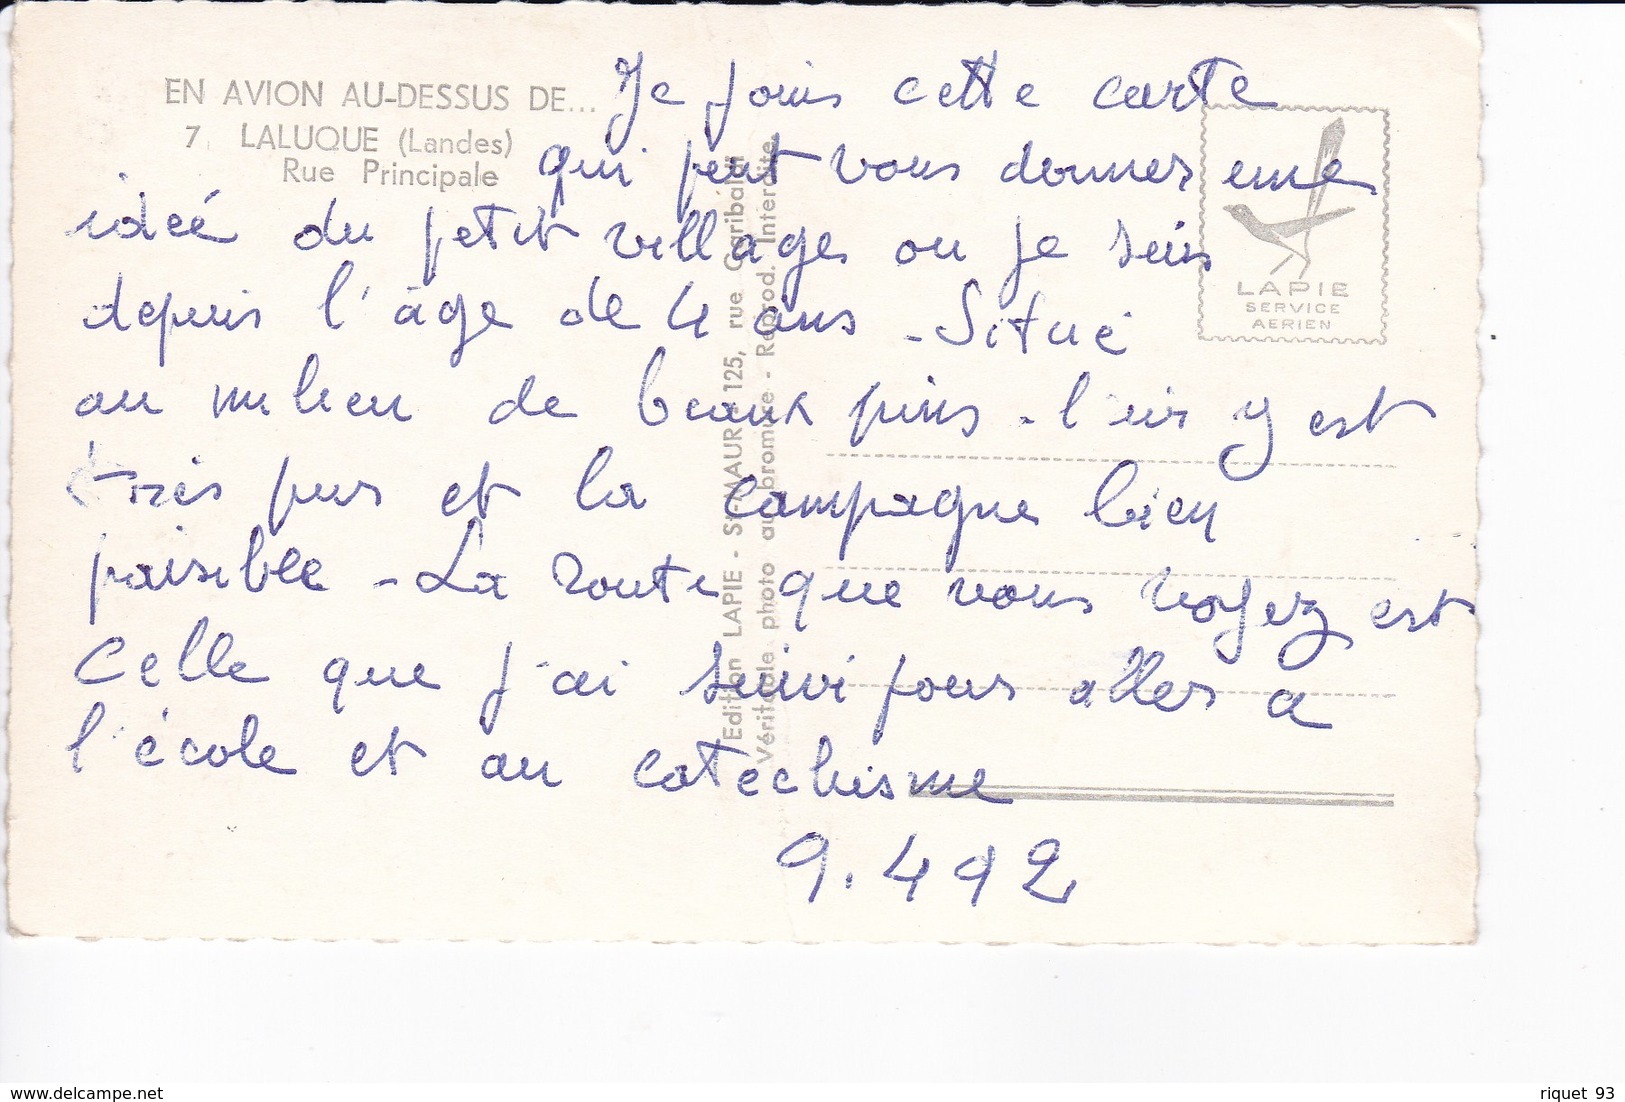 EN AVION AU-DESSUS DE...
7. LALUQUE (Landes)
Rue Principale
Je joins cette carte
qui peut vous donner une
ideé du petit village ou je suis
depuis l'âge de 4 ans - Situé
au milieu de beaux pins - l'air y est
très pur et la campagne bien
paisible - La route que vous voyez est
celle que j'ai suivi pour aller a
l'école et au catechisme
9.492
LAPIE
SERVICE
AERIEN
Edition LAPIE - St-MAUR - 125, rue Garibaldi
Véritable photo au bromure - Reprod. Interdite
delcampe.net
riquet 93